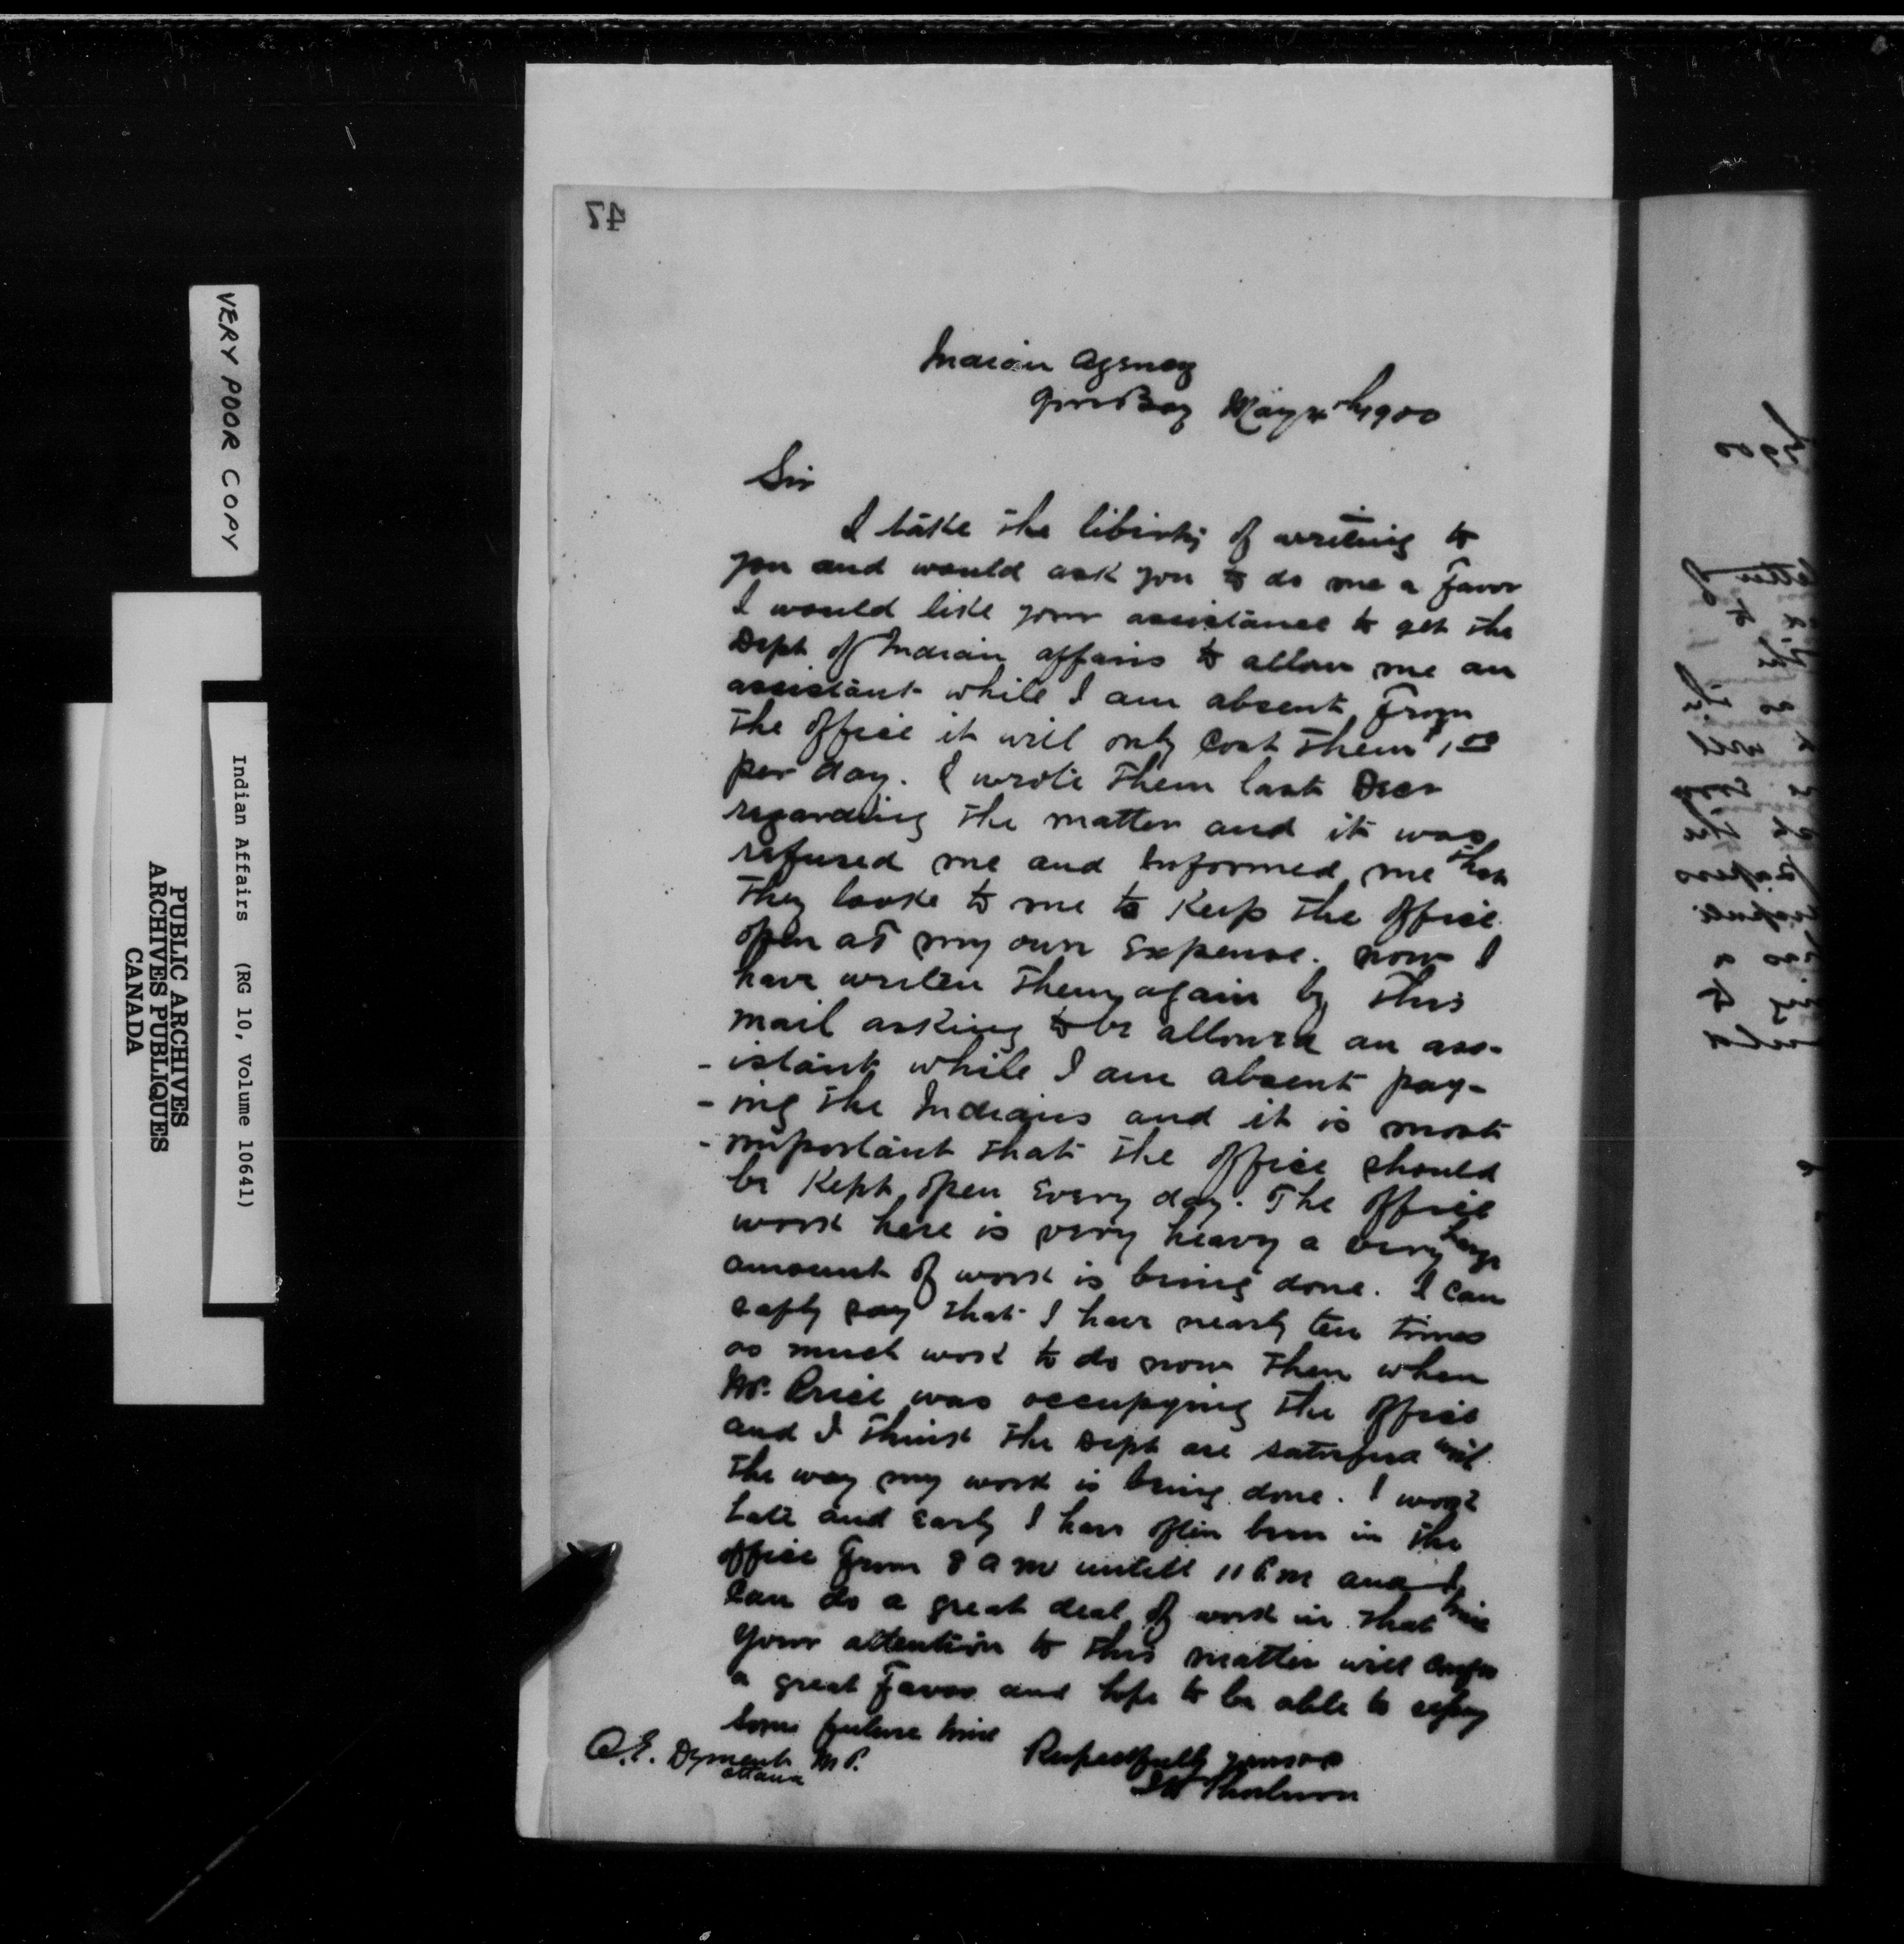 47
Indian Agency
Gore Bay May 1900
Sir
I take the liberty of writing to
you and would ask you to do me a favor
I would like your assistance to get the
Dept of Indian affairs to allow me an
assistant while I am absent from
the office it will only cost them $1.00
per day. I wrote them last Decr
regarding the matter and it was
refused me and informed me that
they looke to me to keep the office
open at my own expense. now I
have written them again by this
mail asking to be allowed an ass-
-istant while I am absent pay-
-ing the Indians and it is most
-important that the office should
be kept open every day. The office
work here is very heavy a very large
amount of work is being done. I can
safly say that I have nearly ten times
as much work to do now then when
Mr. Price was occupying the office
and I think the Dept are satisfied with
the way my work is being done. I work
late and early I have often been in the
office from 8 a m untill 11 P.m and I
can do a great deal of work in that time
your attention to this matter will confer
a great favor and hope to be able to repay
some future time
Respectfully yours
A.E. Dyment M P.
Ottawa
VERY POOR COPY
Indian Affairs (RG 10, Volume 10641)
PUBLIC ARCHIVES
ARCHIVES PUBLIQUES
CANADA